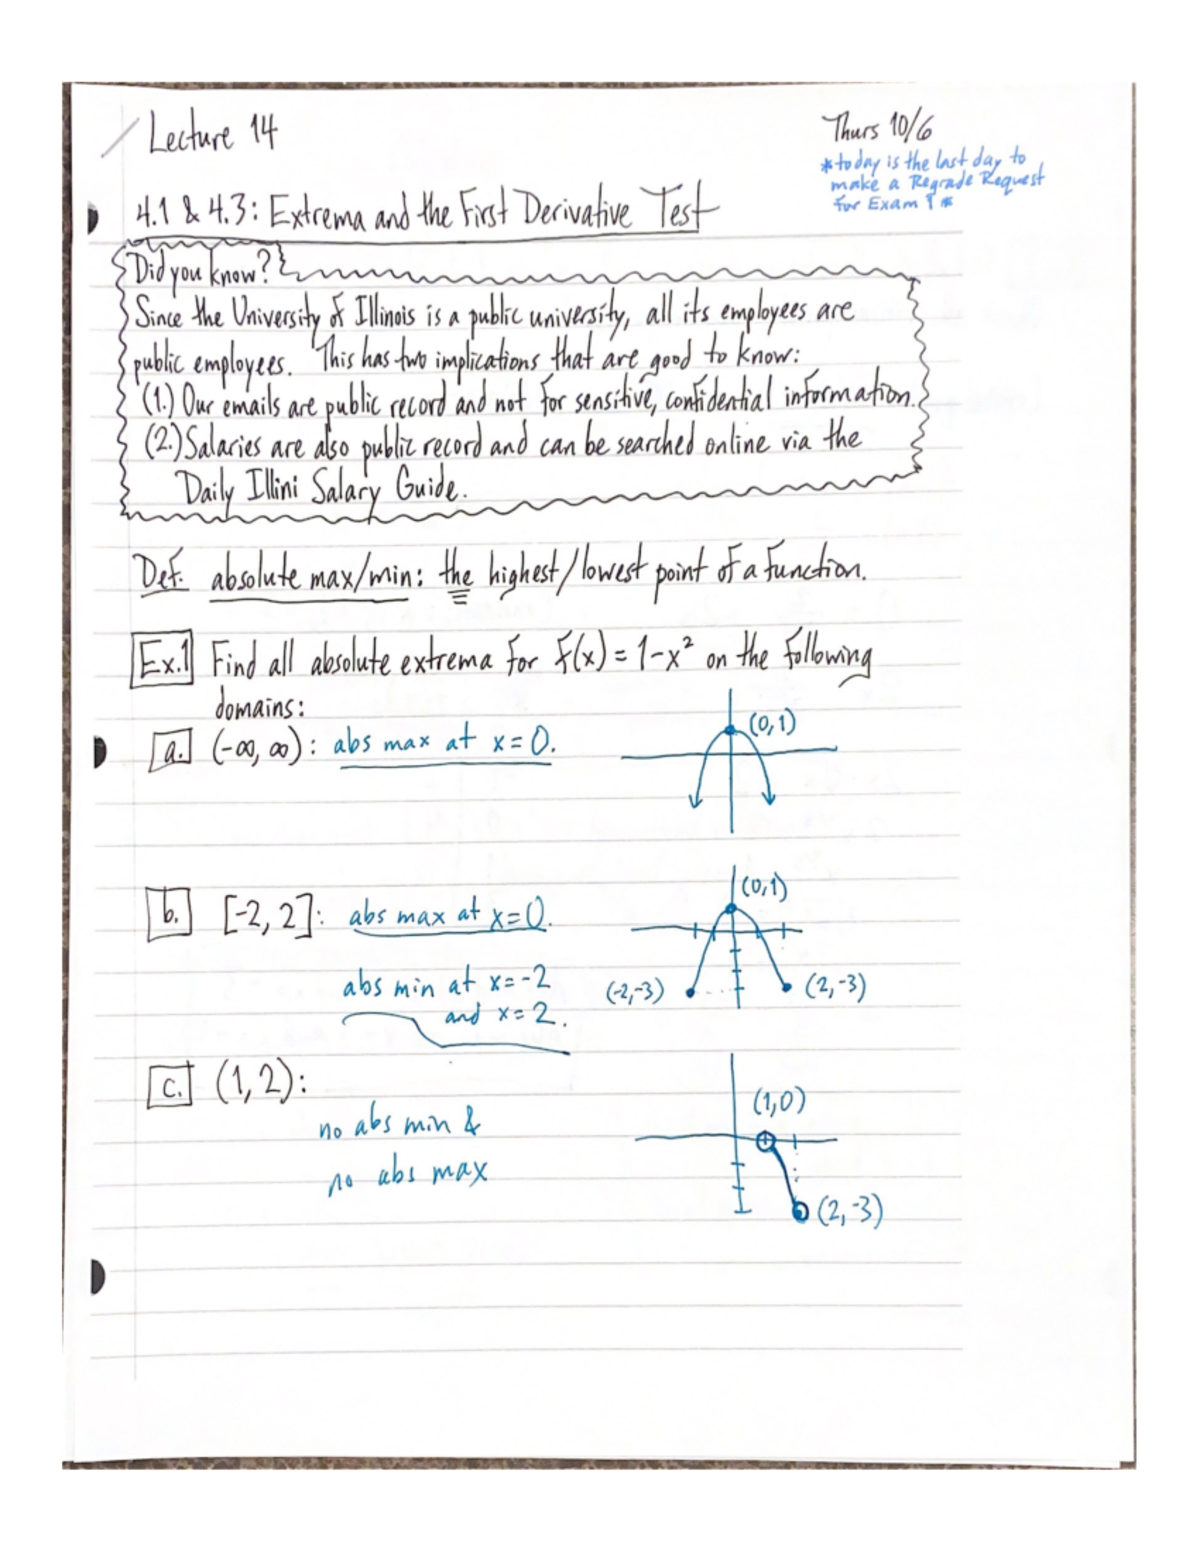 Lecture 14
Thurs 10/6
*today is the last day to
make a Regrade Request
for Exam 1*
4.1 & 4.3: Extrema and the First Derivative Test
Did you know?
Since the University of Illinois is a public university, all its employees are
public employees. This has two implications that are good to know:
(1.) Our emails are public record and not for sensitive, confidential information.
(2.) Salaries are also public record and can be searched online via the
Daily Illini Salary Guide.
Def. absolute max/min: the highest/lowest point of a function.
Ex.1 Find all absolute extrema for f(x) = 1-x² on the following
domains:
a. (-∞, ∞): abs max at x=0.
(0,1)
b. [-2, 2]: abs max at x=0.
(0,1)
abs min at x=-2
and x=2.
(-2,-3)
(2,-3)
c. (1,2):
no abs min &
no abs max
(1,0)
(2,-3)